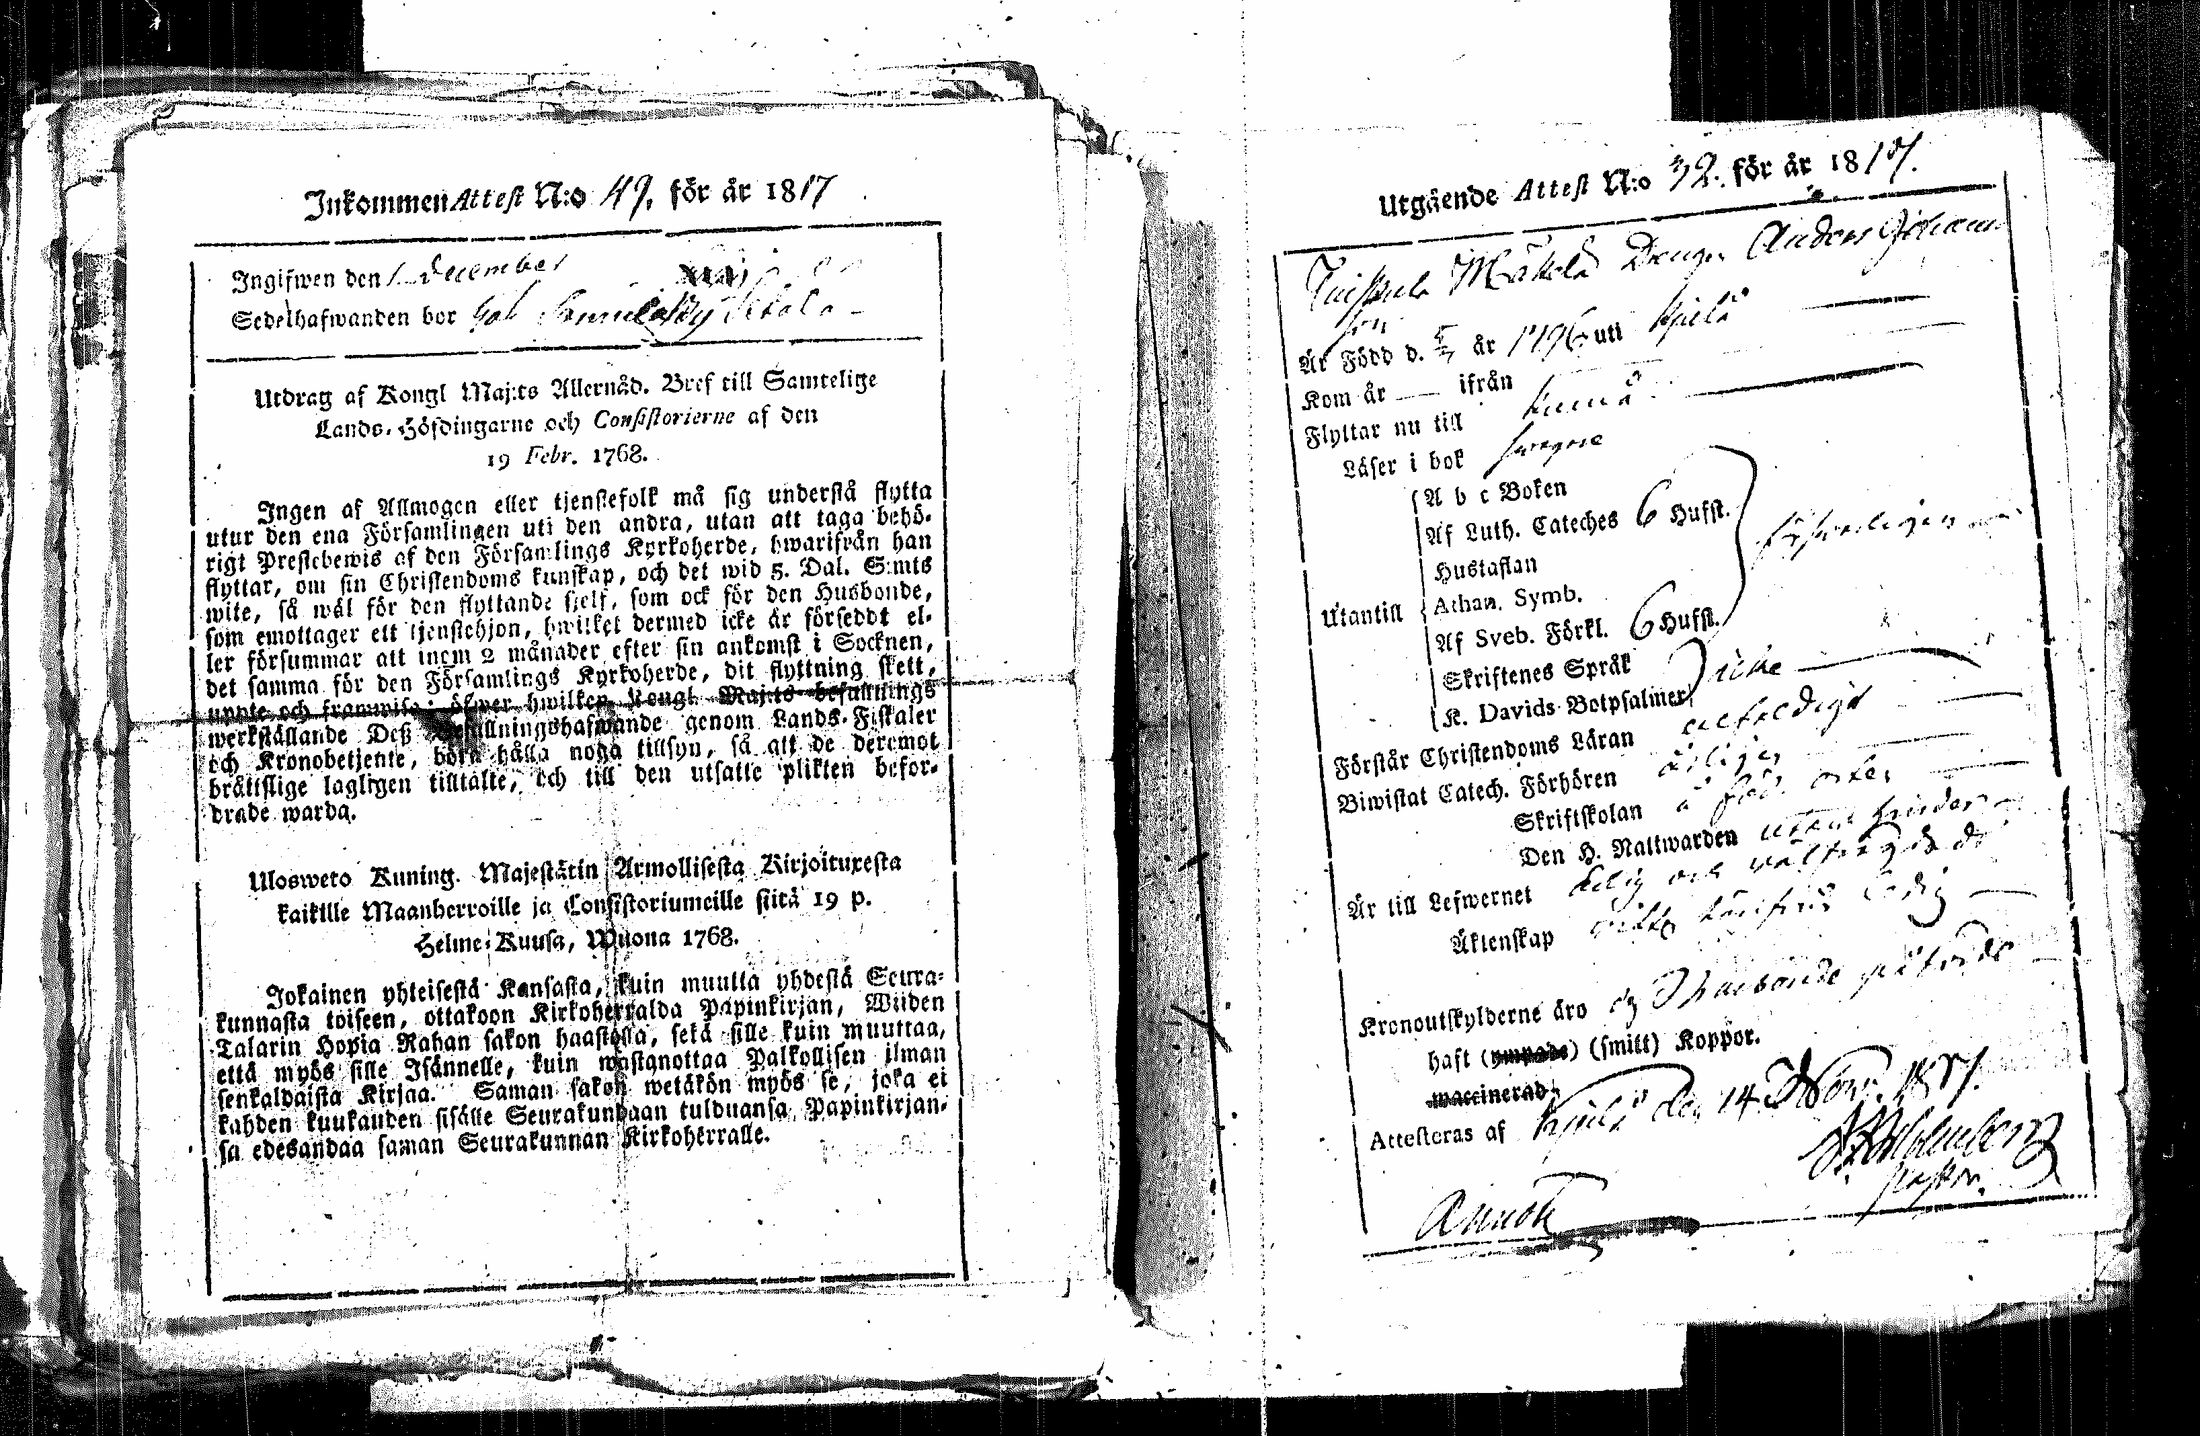 Inkommen Attest N:o 49. för år 1817
Ingifwen den 1 December
Sedelhafwanden bor
Utdrag af Kongl Maj:ts Allernåd. Bref till Samtelige
Lands-Höfdingarne och Consistorierne af den
19 Febr. 1768.
Ingen af Allmogen eller tjenstefolk må sig understå flytta
utur den ena Församlingen uti den andra, utan att taga behö-
rigt Prestebewis af den Församlings Kyrkoherde, hwarifrån han
flyttar, om sin Christendoms kunskap, och det wid 5. Dal. S:mts
wite, så wäl för den flyttande sjelf, som ock för den Husbonde,
som emottager ett tjenstehjon, hwilket dermed icke är försedt el-
ler försummar att inom 2 månader efter sin ankomst i Socknen,
det samma för den Församlings Kyrkoherde, dit flyttning skett,
uppte och framwisa: öfwer hwilken Kongl. Maj:ts befallnings
werkställande Deß Befallningshafwande genom Lands-Fiskaler
och Kronobetjente, böra hålla noga tillsyn, så att de deremot
bråttslige lagligen tilltalte, och till den utsatte plikten befor-
drade warda.
Ulosweto Kuning. Majestätin Armollisesta Kirjoituxesta
kaikille Maanherroille ja Consistoriumeille siitä 19 p.
Helme-Kuusa, Wuona 1768.
Jokainen yhteisestä Kansasta, kuin muutta yhdestä Seura-
kunnasta toiseen, ottakoon Kirkoherralda Papinkirjan, Wiiden
Talarin Hopia Rahan sakon haastolla, sekä sille kuin muuttaa,
että myös sille Isännelle, kuin wastanottaa Palkollisen ilman
senkaldaista Kirjaa. Saman sakon wetäkön myös se, joka ei
kahden kuukauden sisälle Seurakundaan tulduansa, Papinkirjan-
sa edesandaa saman Seurakunnan Kirkoherralle.
Utgående Attest N:o 32. för år 1817.
Mäkelä Dreng. Anders Johans
son
Är Född d. år 1796 uti Kjulo
Kom år — ifrån
Flyttar nu till
Läser i bok
A b c Boken
Af Luth. Cateches 6 Hufst.
Hustaflan
Utantill Athan. Symb.
Af Sveb. Förkl. 6 Hufst.
Skriftenes Språk
K. Davids Botpsalmer icke
Förstår Christendoms Läran enfaldigt
Biwistat Catech. Förhören årligen
Skriftskolan å föd. orten
Den H. Nattwarden utan hinder
Är till Lefwernet ärlig och wälfrägdad
Äktenskap ledig
Kronoutskylderne äro
haft (ympade) (smitt) Koppor.
waccinerad
Attesteras af Kjulo den 14 Nov. 1817.
Pastor.